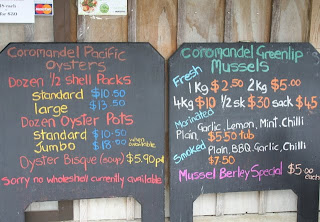 Coromandel Pacific
Oysters
Dozen 1/2 shell Packs
Standard $10.50
large $13.50
Dozen Oyster Pots
Standard $10.50
Jumbo $18.00 when available
Oyster Bisque (soup) $5.90 pot
Sorry no wholeshell currently available
Coromandel Greenlip
Mussels
Fresh
1Kg $2.50 2kg $5.00
4kg $10 1/2 sk $30 sack $45
Marinated
Garlic, Lemon, Mint, Chilli
Plain $5.50 tub
Smoked
Plain, BBQ, Garlic, Chilli
$7.50
Mussel Berley Special $5.00 each